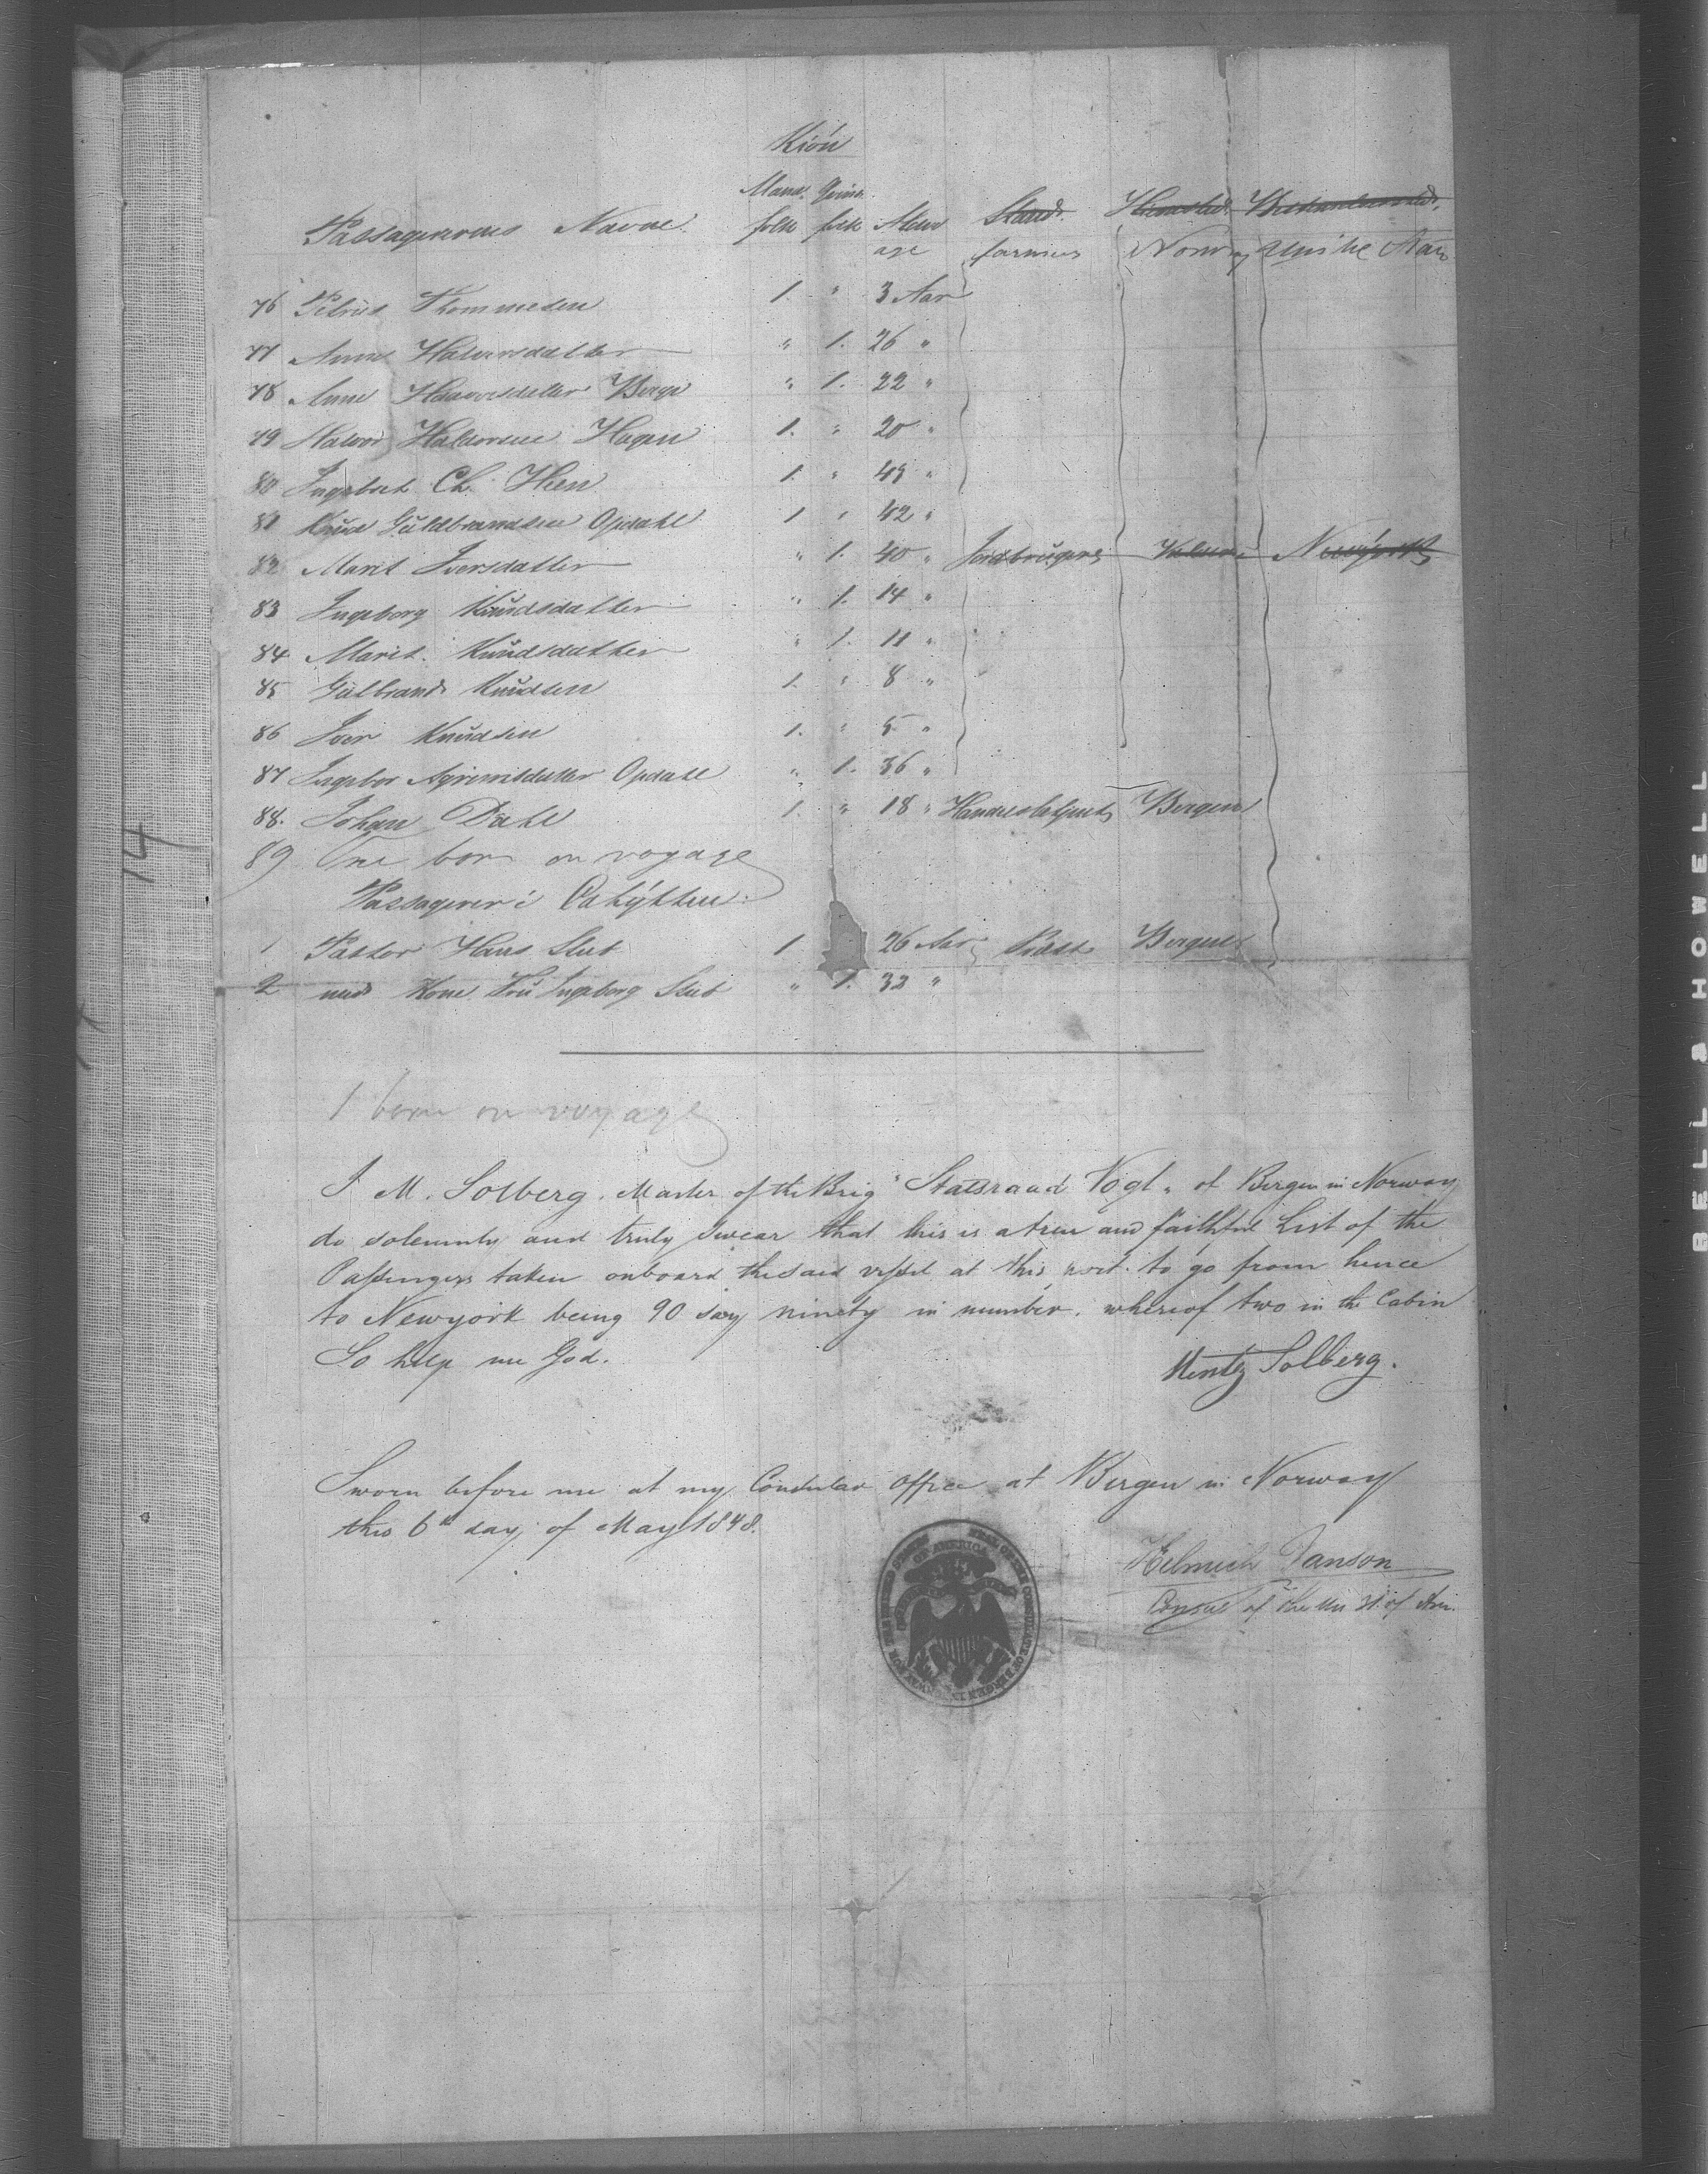 Kiön
Mand. Qvind.
Passagerernes Navne. folk folk Alder Stand. Hiemsted. Bestemmelsessted.
age farmers Norway Unite Stats
76 Petrus Thommesen 1. " 3 Aar
77 Anne Halvorsdatter " 1. 26 "
78 Anne Haavorsdatter Berge " 1. 22 "
79 Halvor Halvorsen Hagen 1. " 20 "
80 Ingebret Ch. Hien 1. " 43 "
81 Knud Guldbrandsen Opdahl 1 " 42 "
82 Marit Iversdatter " 1. 40 " Jordbrugere Newÿork
83 Ingeborg Knudsdatter " 1. 14 "
84 Marit Knudsdatter " 1. 11 "
85 Gulbrand Knudsen 1. " 8 "
86 Iver Knudsen 1. " 5 "
87 Ingebor Opdahl " 1. 36 "
88. Johan Dahl 1. " 18 " Handelsbetjent Bergen
89 One born on voyage
Passagerer i Cahÿtten:
1 Pastor Hans Stub 1. 26 Aar Præst Bergen
2 med Kone Fru Ingeborg Stub " 1. 32 "
1 born on voyage
I M. Solberg. Master of the Brig "Statsraad Vogt" of Bergen in Norway
do solemnly and truly swear that this is a true and faithful List of the
Passengers taken onboard the said vessel at this port to go from hence
to Newyork being 90 say ninety in number, whereof two in the Cabin
So help me God.
Mentz Solberg.
Sworn before me at my Consular Office at Bergen in Norway
this 6th day of May 1848.
Helmich Janson
Consul of the Un St. of Am.
OF AMERICA
14
BELL & HOWELL